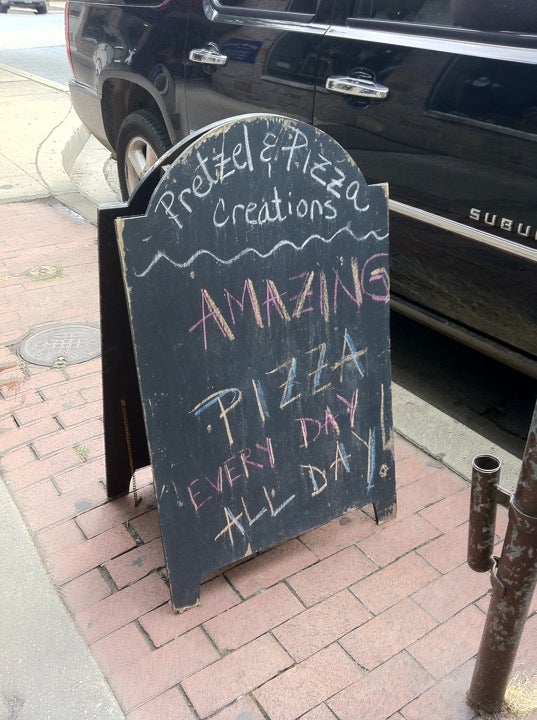 Pretzel & Pizza
Creations
AMAZING
PIZZA
EVERY DAY
ALL DAY!
SUBU